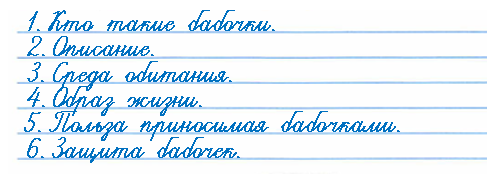 1. Кто такие бабочки.
2. Описание.
3. Среда обитания.
4. Образ жизни.
5. Польза приносимая бабочками.
6. Защита бабочек.